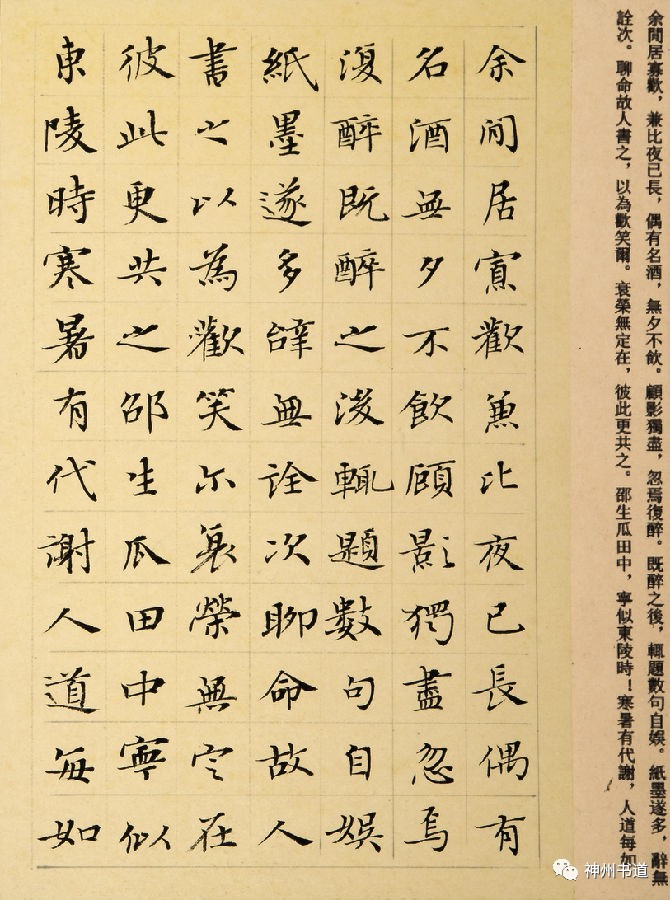 余閒居寡歡，兼比夜已長，偶有名酒，無夕不飲。顧影獨盡，忽焉復醉。既醉之後，輒題數句自娛。紙墨遂多，辭無
詮次。聊命故人書之，以為歡笑爾。衰榮無定在，彼此更共之。邵生瓜田中，寧似東陵時！寒暑有代謝，人道每如
余閒居寡歡兼比夜已長偶有
名酒無夕不飲顧影獨盡忽焉
復醉既醉之後輒題數句自娛
紙墨遂多辝無詮次聊命故人
書之以為歡笑尔衰榮無定在
彼此更共之邵生瓜田中寧似
東陵時寒暑有代謝人道每如
神州书道